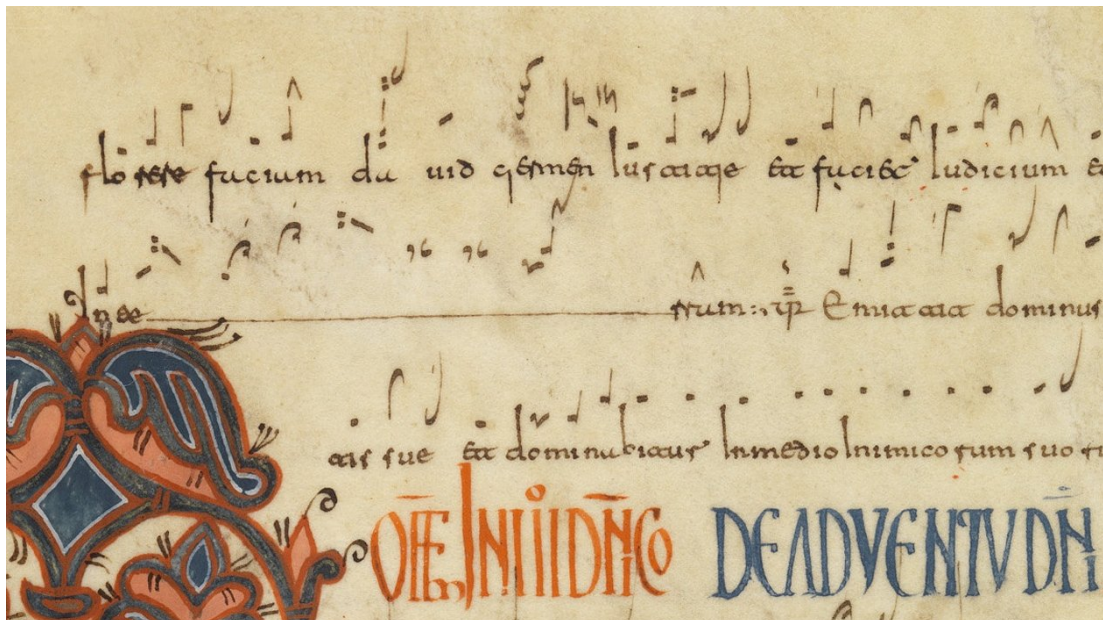 florere faciam da uid germen Iustitie et faciet Iudicium et
In te rram Emittat dominus
tis sue et dominabitur Inmedio Inimicorum suo ru
IN II DNICO DE ADVENTV DNI